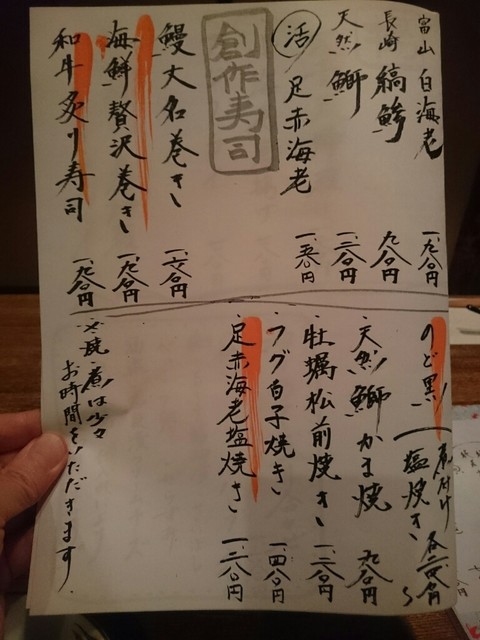 富山 白海老 一、九八〇円
長崎 縞鯵 九八〇円
天然 鰤 一、二八〇円
活 足赤海老 一、一八〇円
創作寿司
鰻大名巻き 一、六八〇円
海鮮贅沢巻き 一、九八〇円
和牛炙り寿司 一、九八〇円
のど黒 煮付け 塩焼き
天然鰤かま焼 九八〇円
牡蠣松前焼き 一、二八〇円
フグ白子焼き 一、四八〇円
足赤海老塩焼き 一、二八〇円
※焼・煮は少々
お時間をいただきます。